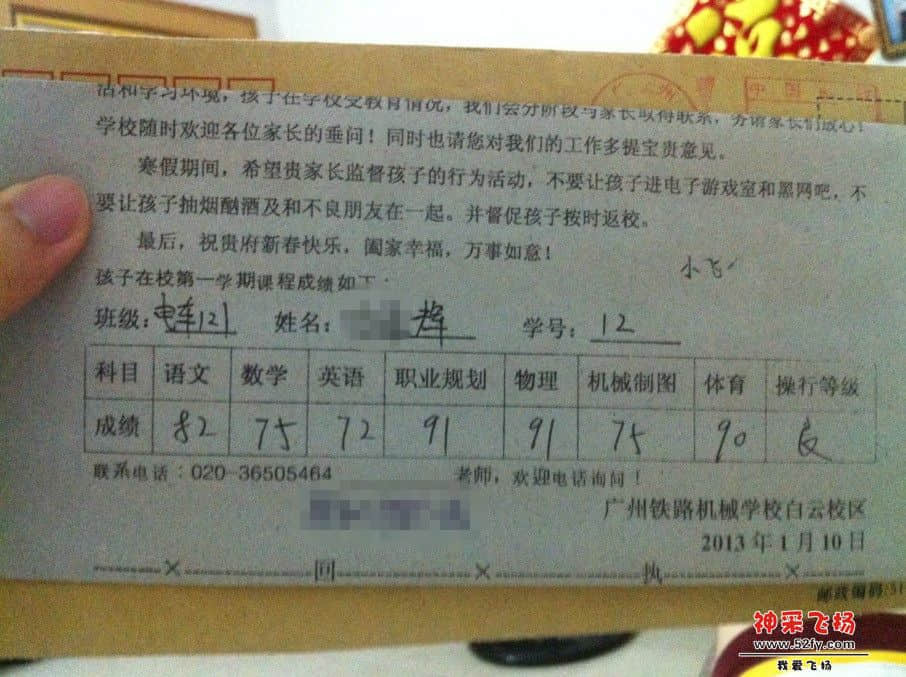 中国
活和学习环境，孩子在学校受教育情况，我们会分阶段与家长取得联系，务请家长们放心！
学校随时欢迎各位家长的垂问！同时也请您对我们的工作多提宝贵意见。
寒假期间，希望贵家长监督孩子的行为活动，不要让孩子进电子游戏室和黑网吧，不
要让孩子抽烟酗酒及和不良朋友在一起。并督促孩子按时返校。
最后，祝贵府新春快乐，阖家幸福，万事如意！
小飞
孩子在校第一学期课程成绩如下：
班级：电车121 姓名： 辉 学号：12
科目 语文 数学 英语 职业规划 物理 机械制图 体育 操行等级
成绩 82 75 72 91 91 75 90 良
联系电话：020-36505464 老师，欢迎电话询问！
广州铁路机械学校白云校区
2013年1月10日
回 执
邮政编码:51
神采飞扬
www.52fy.com
我爱飞扬